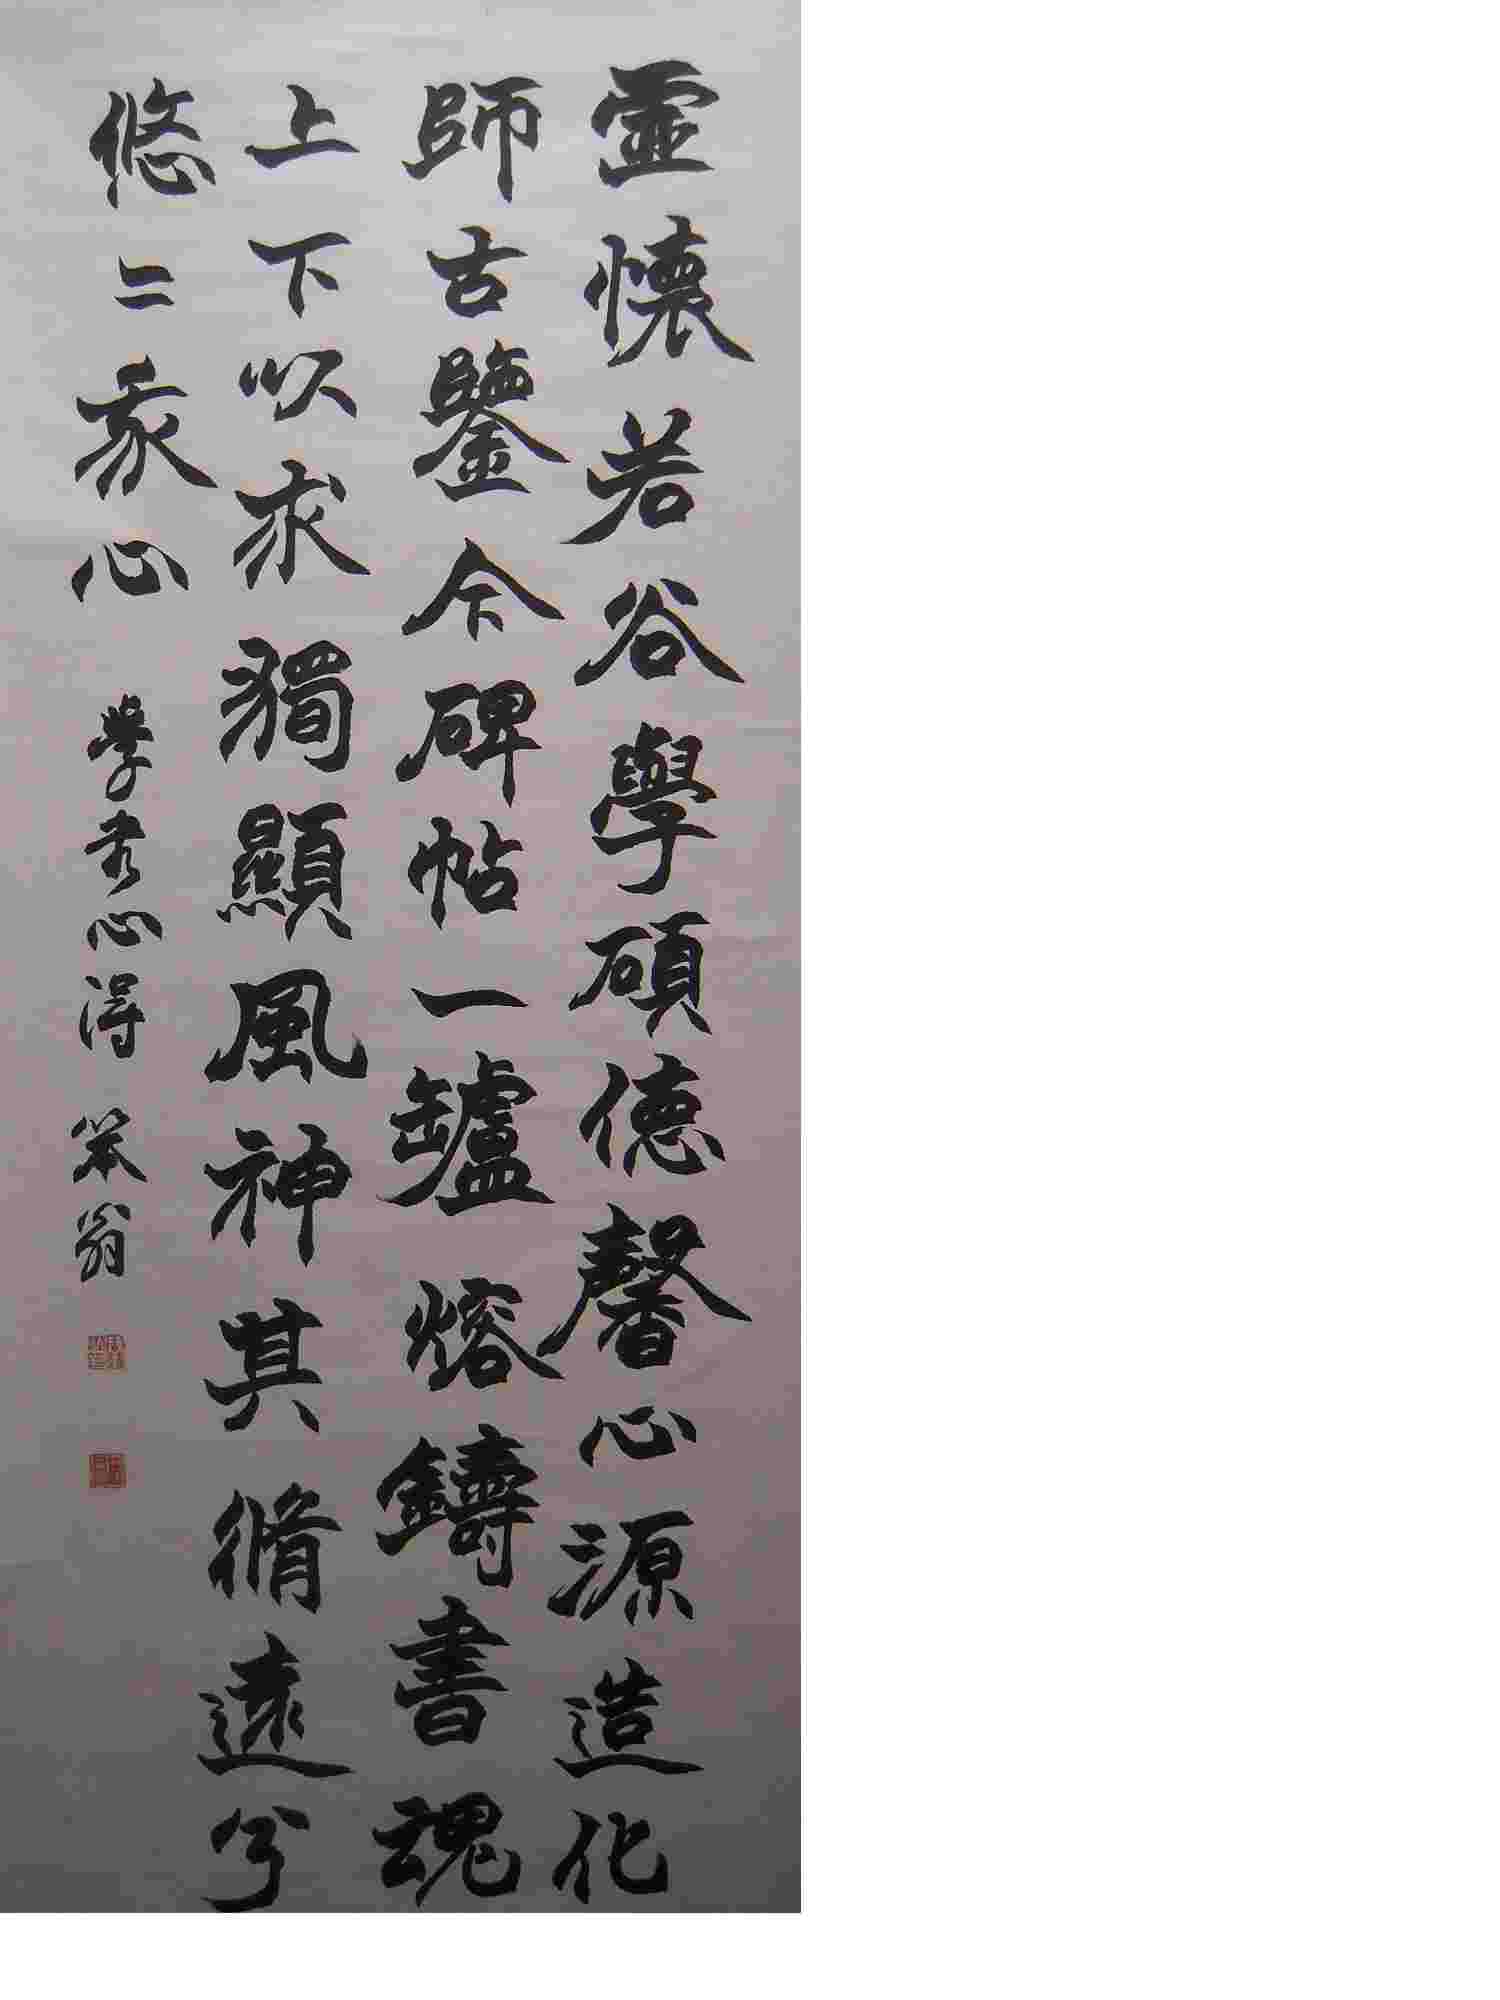 靈懷若谷學碩德馨心源造化
師古鑒今碑帖一罏熔鑄書魂
上下以求獨顯風神其脩遠兮
悠〻我心
學書心得 笨翁